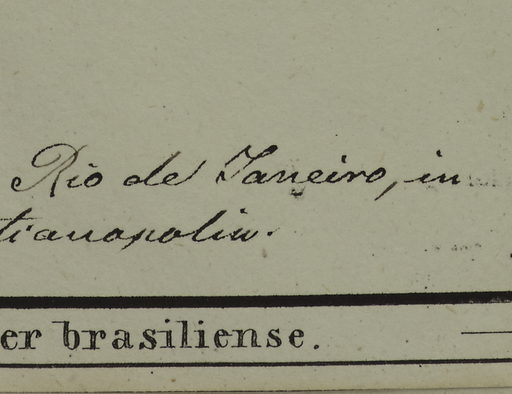 Rio de Janeiro, in
tianopolin.
er brasiliense.